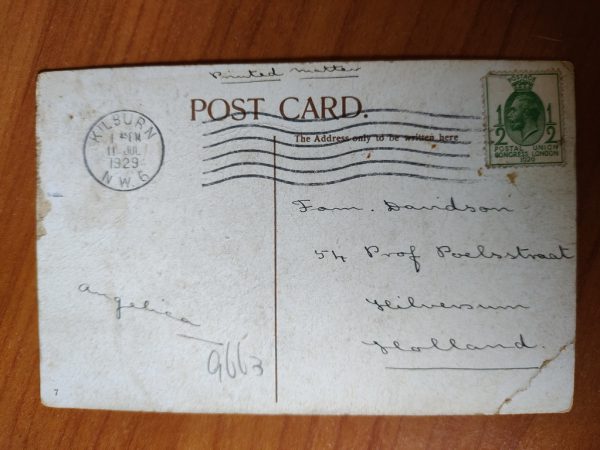 Printed matter
POST CARD.
The Address only to be written here
KILBURN
11 JUL
1929
N.W.6
POSTAGE
1/2 1/2
POSTAL UNION
CONGRESS LONDON
1929
Fam. Davidson
54 Prof Poelsstraat
Hilversum
Holland.
Angelica
9663
7